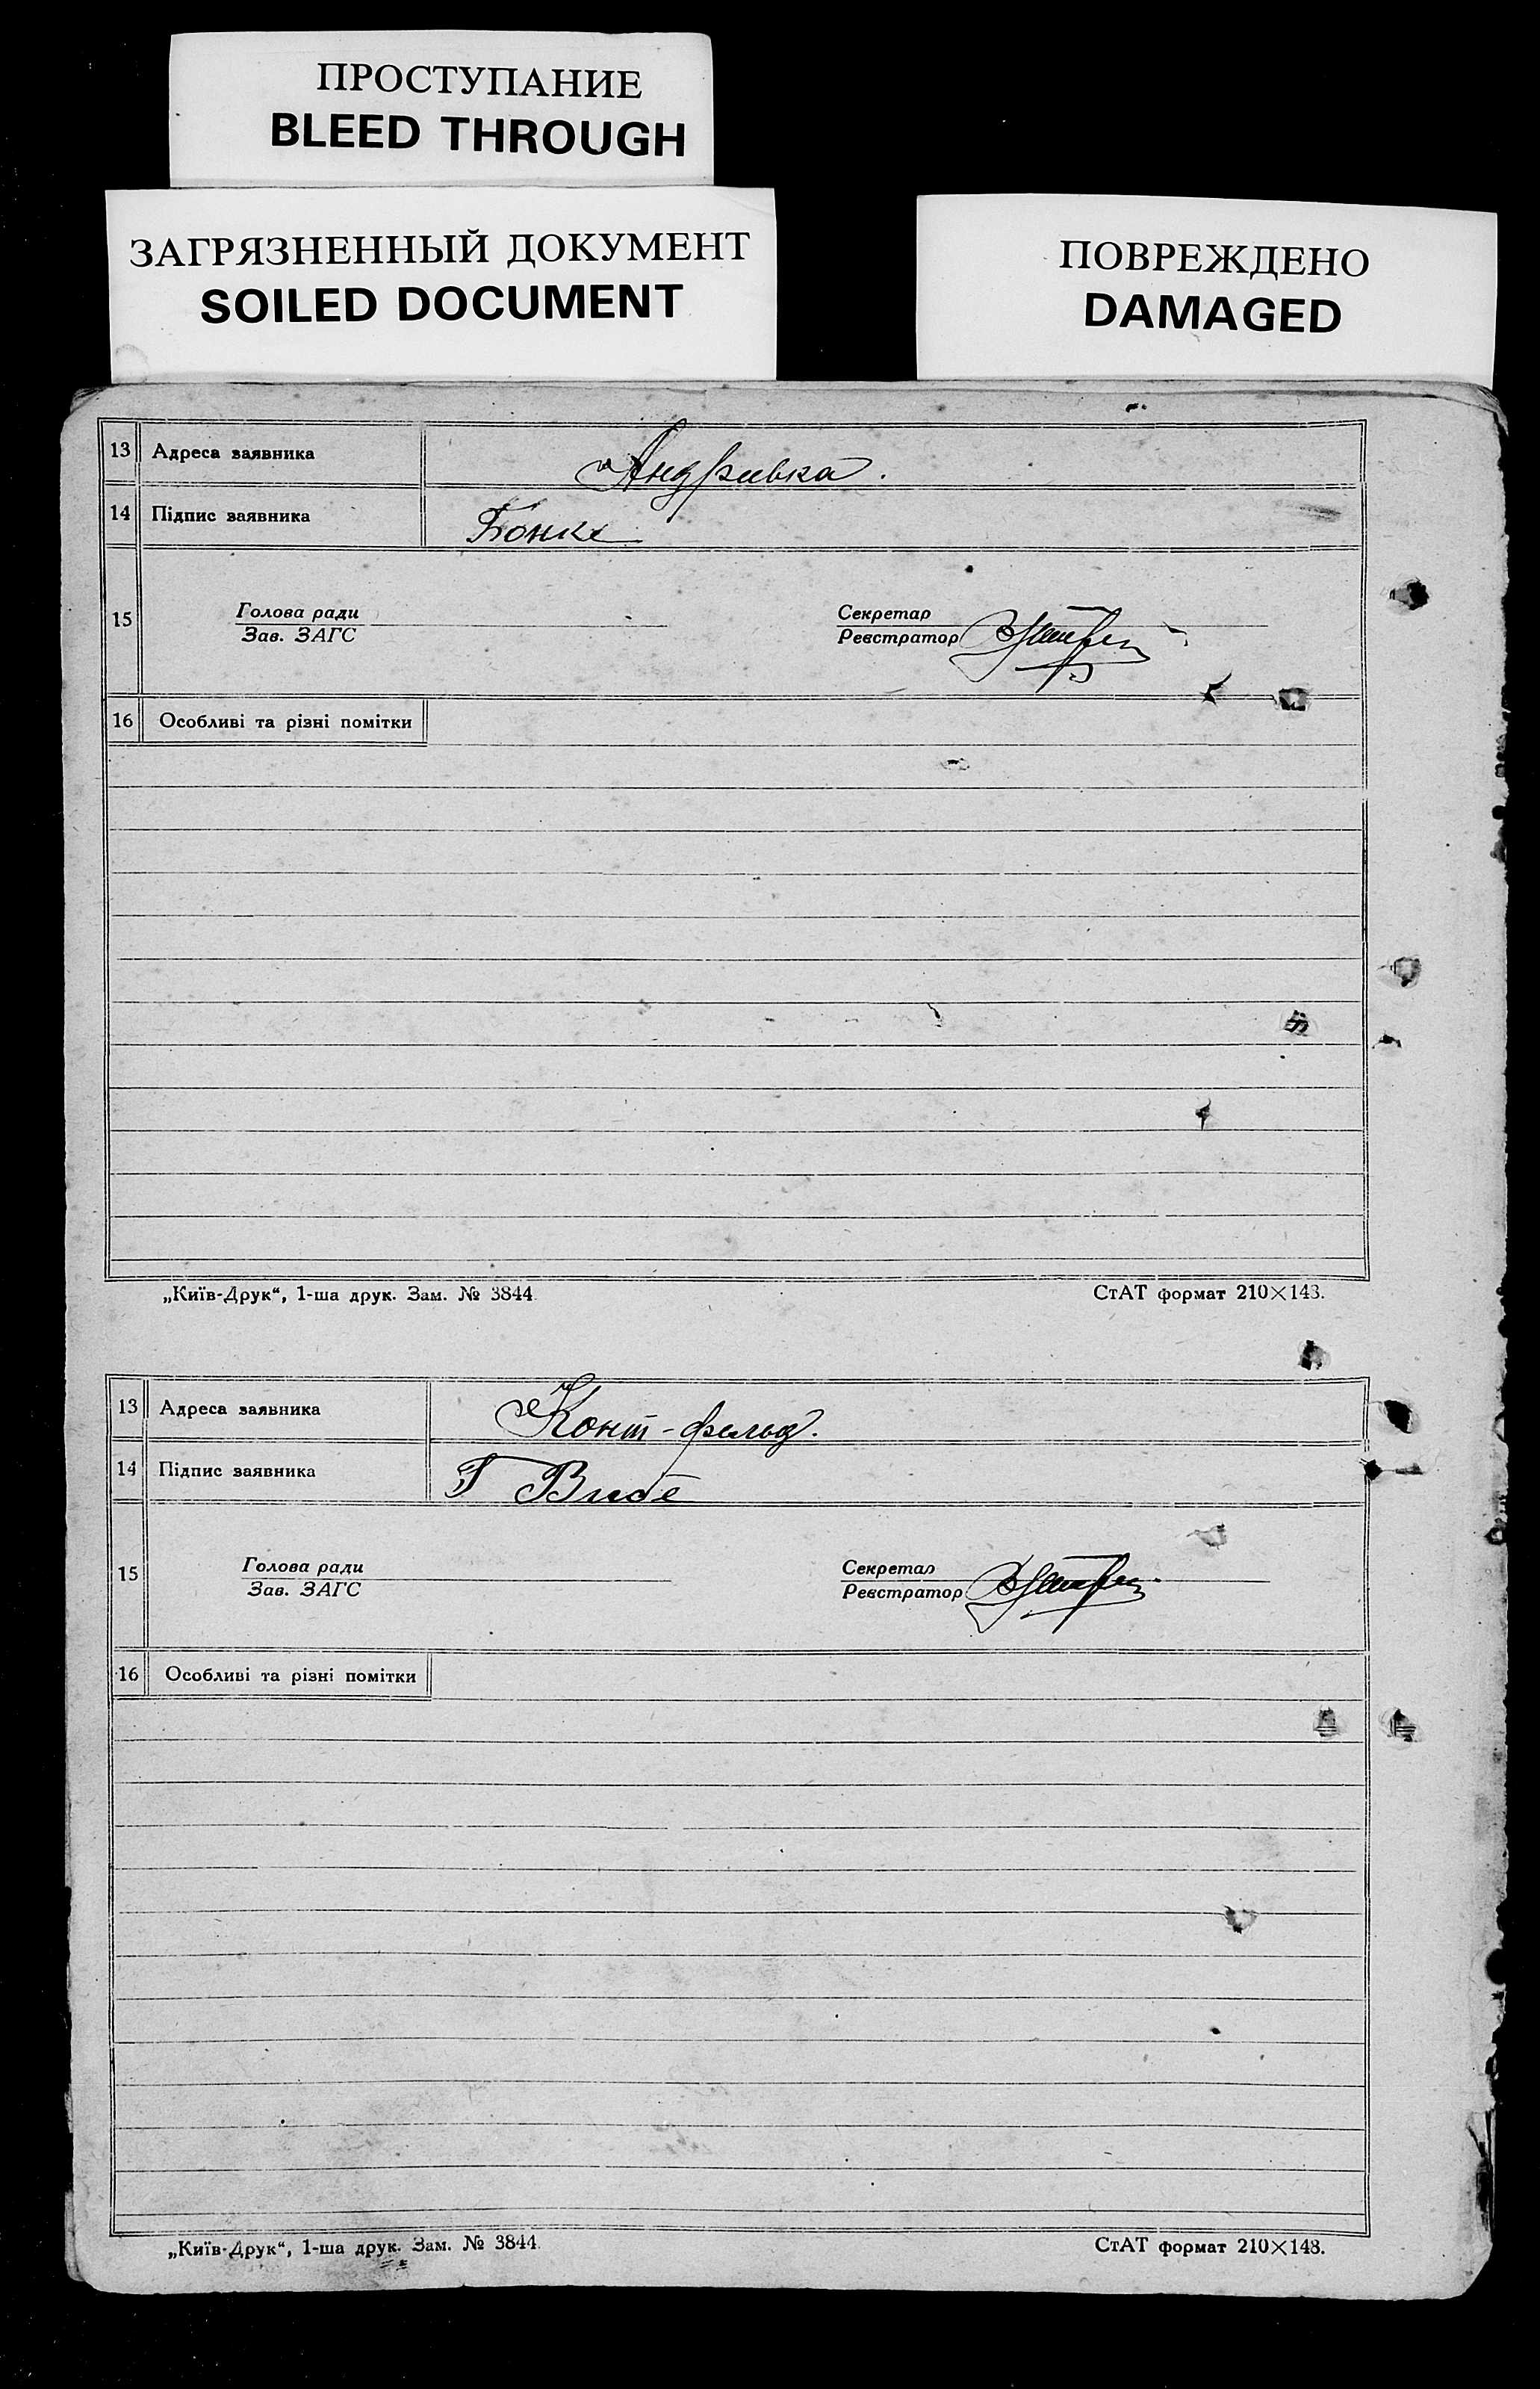 ПРОСТУПАНИЕ
BLEED THROUGH
ЗАГРЯЗНЕННЫЙ ДОКУМЕНТ
SOILED DOCUMENT
ПОВРЕЖДЕНО
DAMAGED
13 Адреса заявника Андривка.
14 Підпис заявника Бонке
Голова ради Секретар
15
Зав. ЗАГС Реєстратор
16 Особливі та різні помітки
„Київ-Друк“, 1-ша друк. Зам. № 3844. СтАТ формат 210×143.
13 Адреса заявника Конт-фельд.
14 Підпис заявника Г Виде
Голова ради Секретар
15
Зав. ЗАГС Реєстратор
16 Особливі та різні помітки
„Київ-Друк“, 1-ша друк. Зам. № 3844. СтАТ формат 210×148.